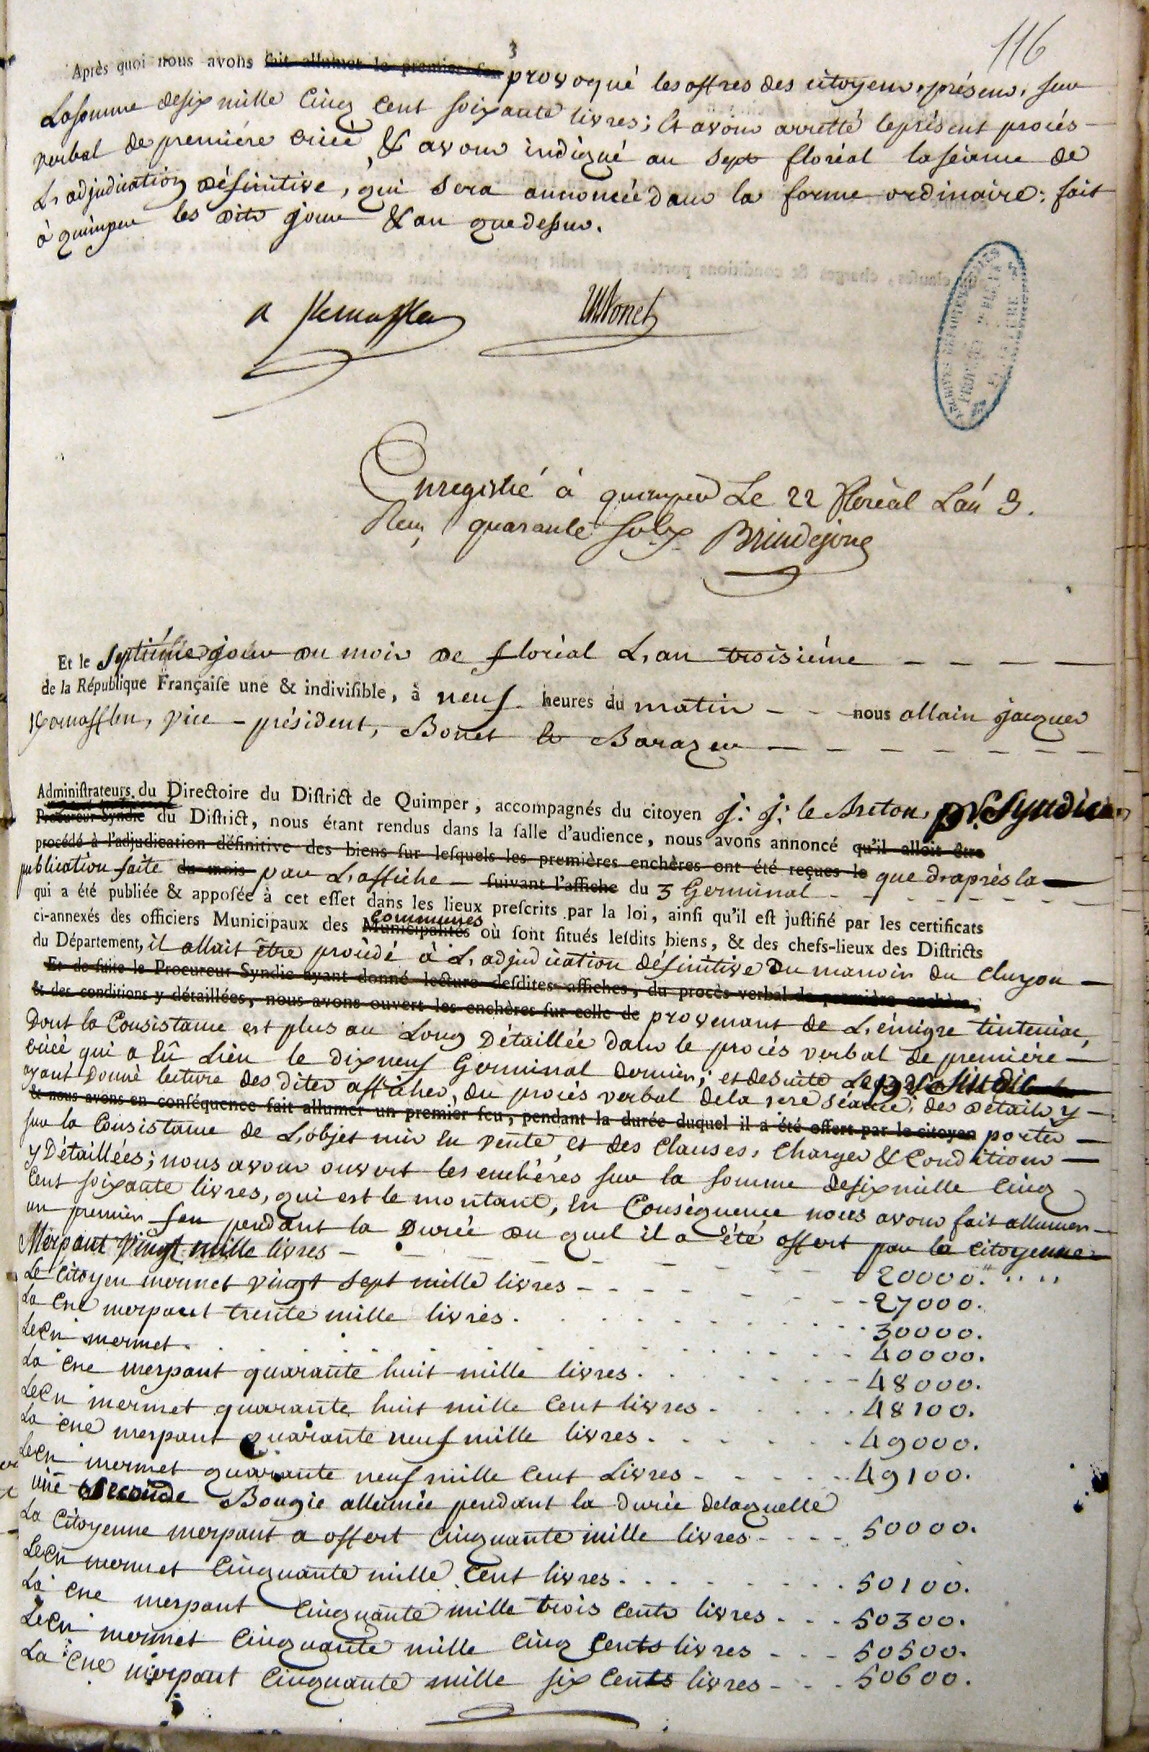 116
3
Après quoi nous avons fait allumer le premier feu provoqué les offres des citoyens présens, sur
La somme de six mille cinq cent soixante livres ; Et avons arretté le présent procés-
verbal de premiére criée, & avons indiqué au sept floréal la séance de
L'adjudication définitive, qui sera annoncée dans la forme ordinaire : fait
à quimper les dits jour & an que dessus.
Enregistré à quimper Le 22 floréal L'an 3.
Reçu quarante sols Brindejonc
Et le Septiéme jour du mois de floréal L'an troisiéme
de la République Françaiſe une & indiviſible, à neuf heures du matin nous allain jacques
Kernafflen, vice-président, Bonet & Barazer
Adminiſtrateurs du Directoire du Diſtrict de Quimper, accompagnés du citoyen J: J: le Breton, pr. Syndic
Procureur-Syndic du Diſtrict, nous étant rendus dans la ſalle d'audience, nous avons annoncé qu'il alloit être
procédé à l'adjudication définitive des biens ſur leſquels les premières enchères ont été reçues le que d'après la
publication faite du mois par L'affiche ſuivant l'affiche du 3 Germinal
qui a été publiée & appoſée à cet effet dans les lieux preſcrits par la loi, ainſi qu'il eſt juſtifié par les certificats
ci-annexés des officiers Municipaux des Municipalités communes où ſont ſitués leſdits biens, & des chefs-lieux des Diſtricts
du Département, il allait être procédé à L'adjudication définitive du manoir du
Et de ſuite le Procureur-Syndic ayant donné lecture deſdites affiches, du procès-verbal de première enchère,
& des conditions y détaillées, nous avons ouvert les enchères ſur celle de provenant de L'émigré tinteniac,
Dont la Consistance est plus au Long Détaillée dans le procés verbal de premiére
criée qui a Eû Lieu le dix neuf Germinal dernier ; et de suite Le pr. Sindic
ayant donné lecture des dites affiches, du procés verbal de la 1ere séance, des détails y
& nous avons en conſéquence fait allumer un premier feu, pendant la durée duquel il a été offert par le citoyen portés
sur la Consistance de L'objet mis en vente et des Clauses, Charges & Conditions
y Détaillées ; nous avons ouvert les enchéres sur la somme de six mille Cinq
Cent soixante livres, qui est le montant, En Conséquence nous avons fait allumer
un premier feu pendant la Durée du quel il a été offert par la citoyenne
Merpaut Vingt mille livres 20000.
Le Citoyen mermet vingt sept mille livres 27000.
La Cne merpaut trente mille livres 30000.
Le Cn mermet 40000.
La Cne merpaut quarante huit mille livres 48000.
Le Cn mermet quarante huit mille Cent livres 48100.
La Cne merpaut quarante neuf mille livres 49000.
Le Cn mermet quarante neuf mille Cent Livres 49100.
une Seconde Bougie allumée pendant la durée de laquelle
La Citoyenne merpaut a offert Cinquante mille livres 50000.
Le Cn mermet Cinquante mille Cent livres 50100.
La Cne merpaut Cinquante mille trois Cents livres 50300.
Le Cn mermet Cinquante mille Cinq Cents livres 50500.
La Cne merpaut Cinquante mille six Cents livres 50600.